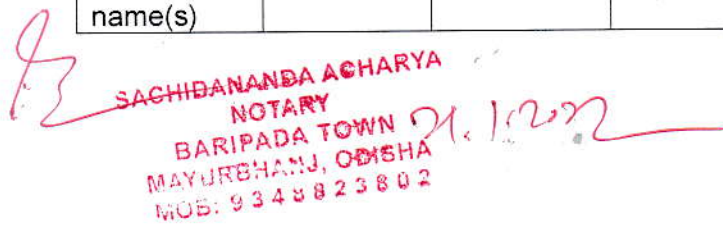 name(s)
SACHIDANANDA ACHARYA
NOTARY
BARIPADA TOWN
21.1.2022
MAYURBHANJ, ODISHA
MOB: 9348823802